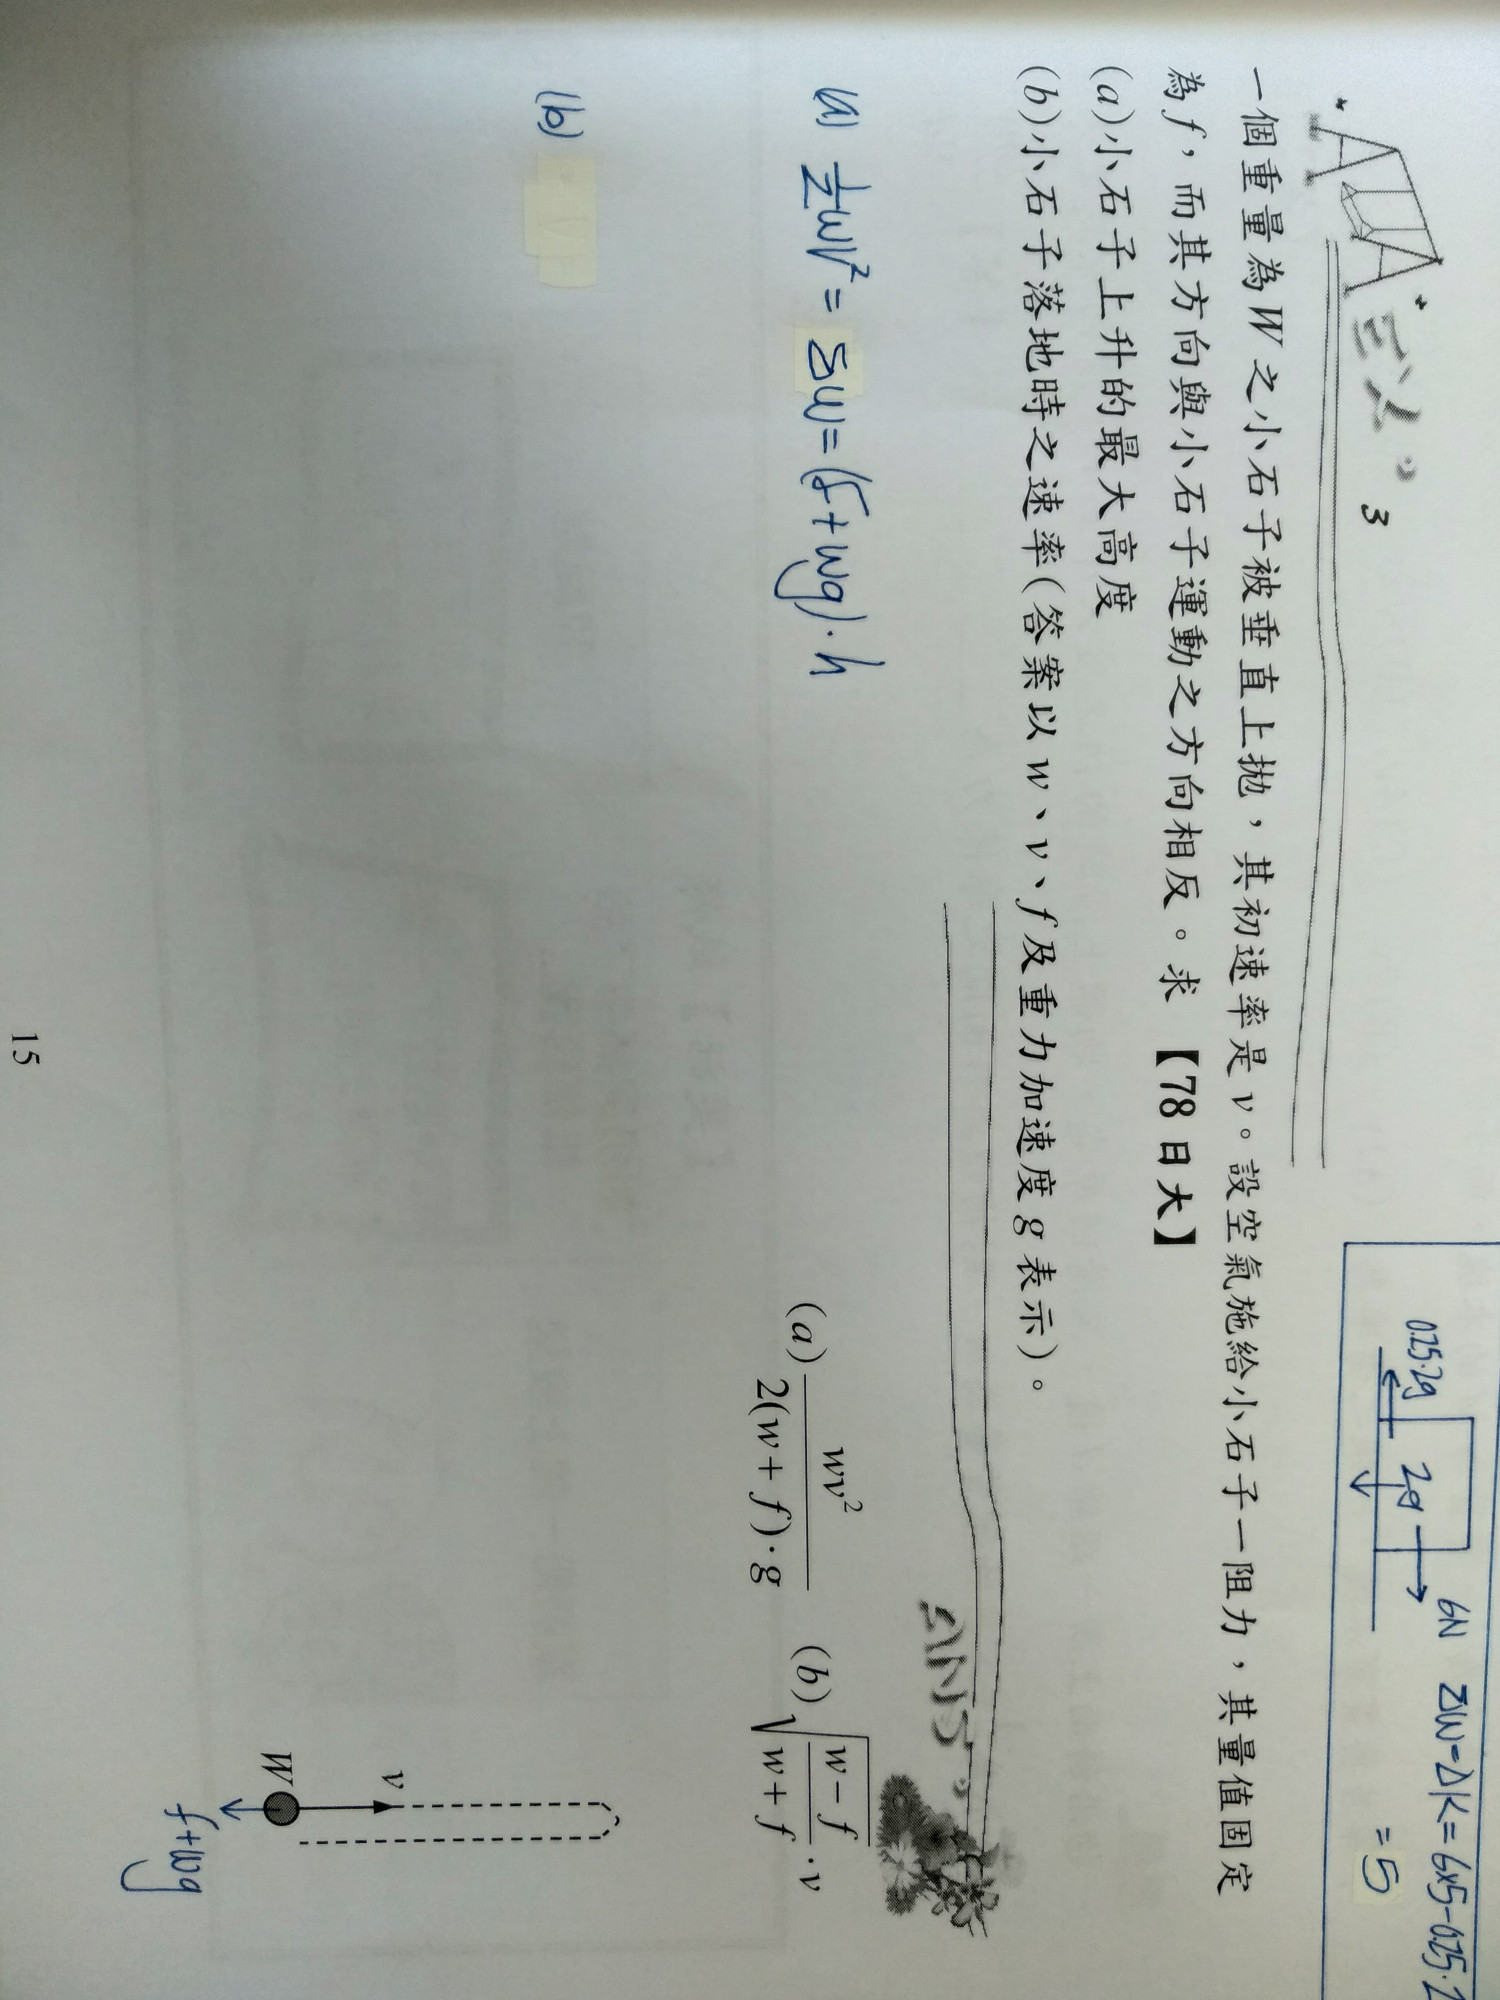 3
0.25·2g
2g
6N ΣW=ΔK=6×5-0.25·2
=5
一個重量為W之小石子被垂直上拋,其初速率是v。設空氣施給小石子一阻力,其量值固定
為f,而其方向與小石子運動之方向相反。求【78日大】
(a)小石子上升的最大高度
(b)小石子落地時之速率(答案以w、v、f及重力加速度g表示)。
ANS
(a) wv²/2(w+f)·g (b) √((w-f)/(w+f))·v
(a) ½wv² = ΣW = (f+wg)·h
(b)
v
W
f+wg
15